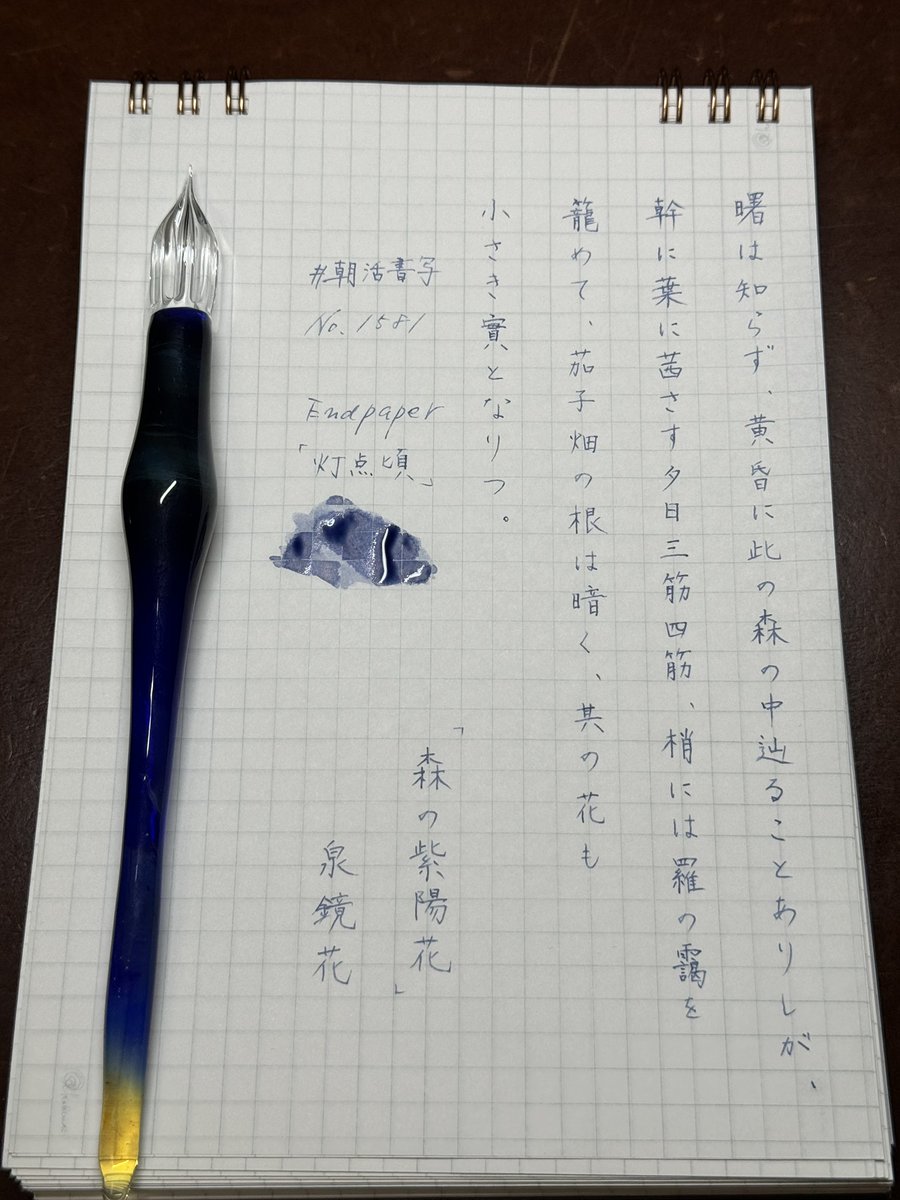 曙は知らず、黄昏に此の森の中辿ることありしが、
幹に葉に茜さす夕日三筋四筋、梢には羅の靄を
籠めて、茄子畑の根は暗く、其の花も
小さき實となりつ。
「森の紫陽花」
泉鏡花
#朝活書写
No.1581
Endpaper
「灯点頃」